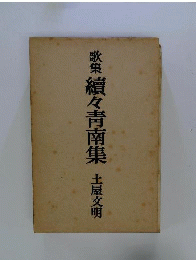 歌集
續々青南集
土屋文明